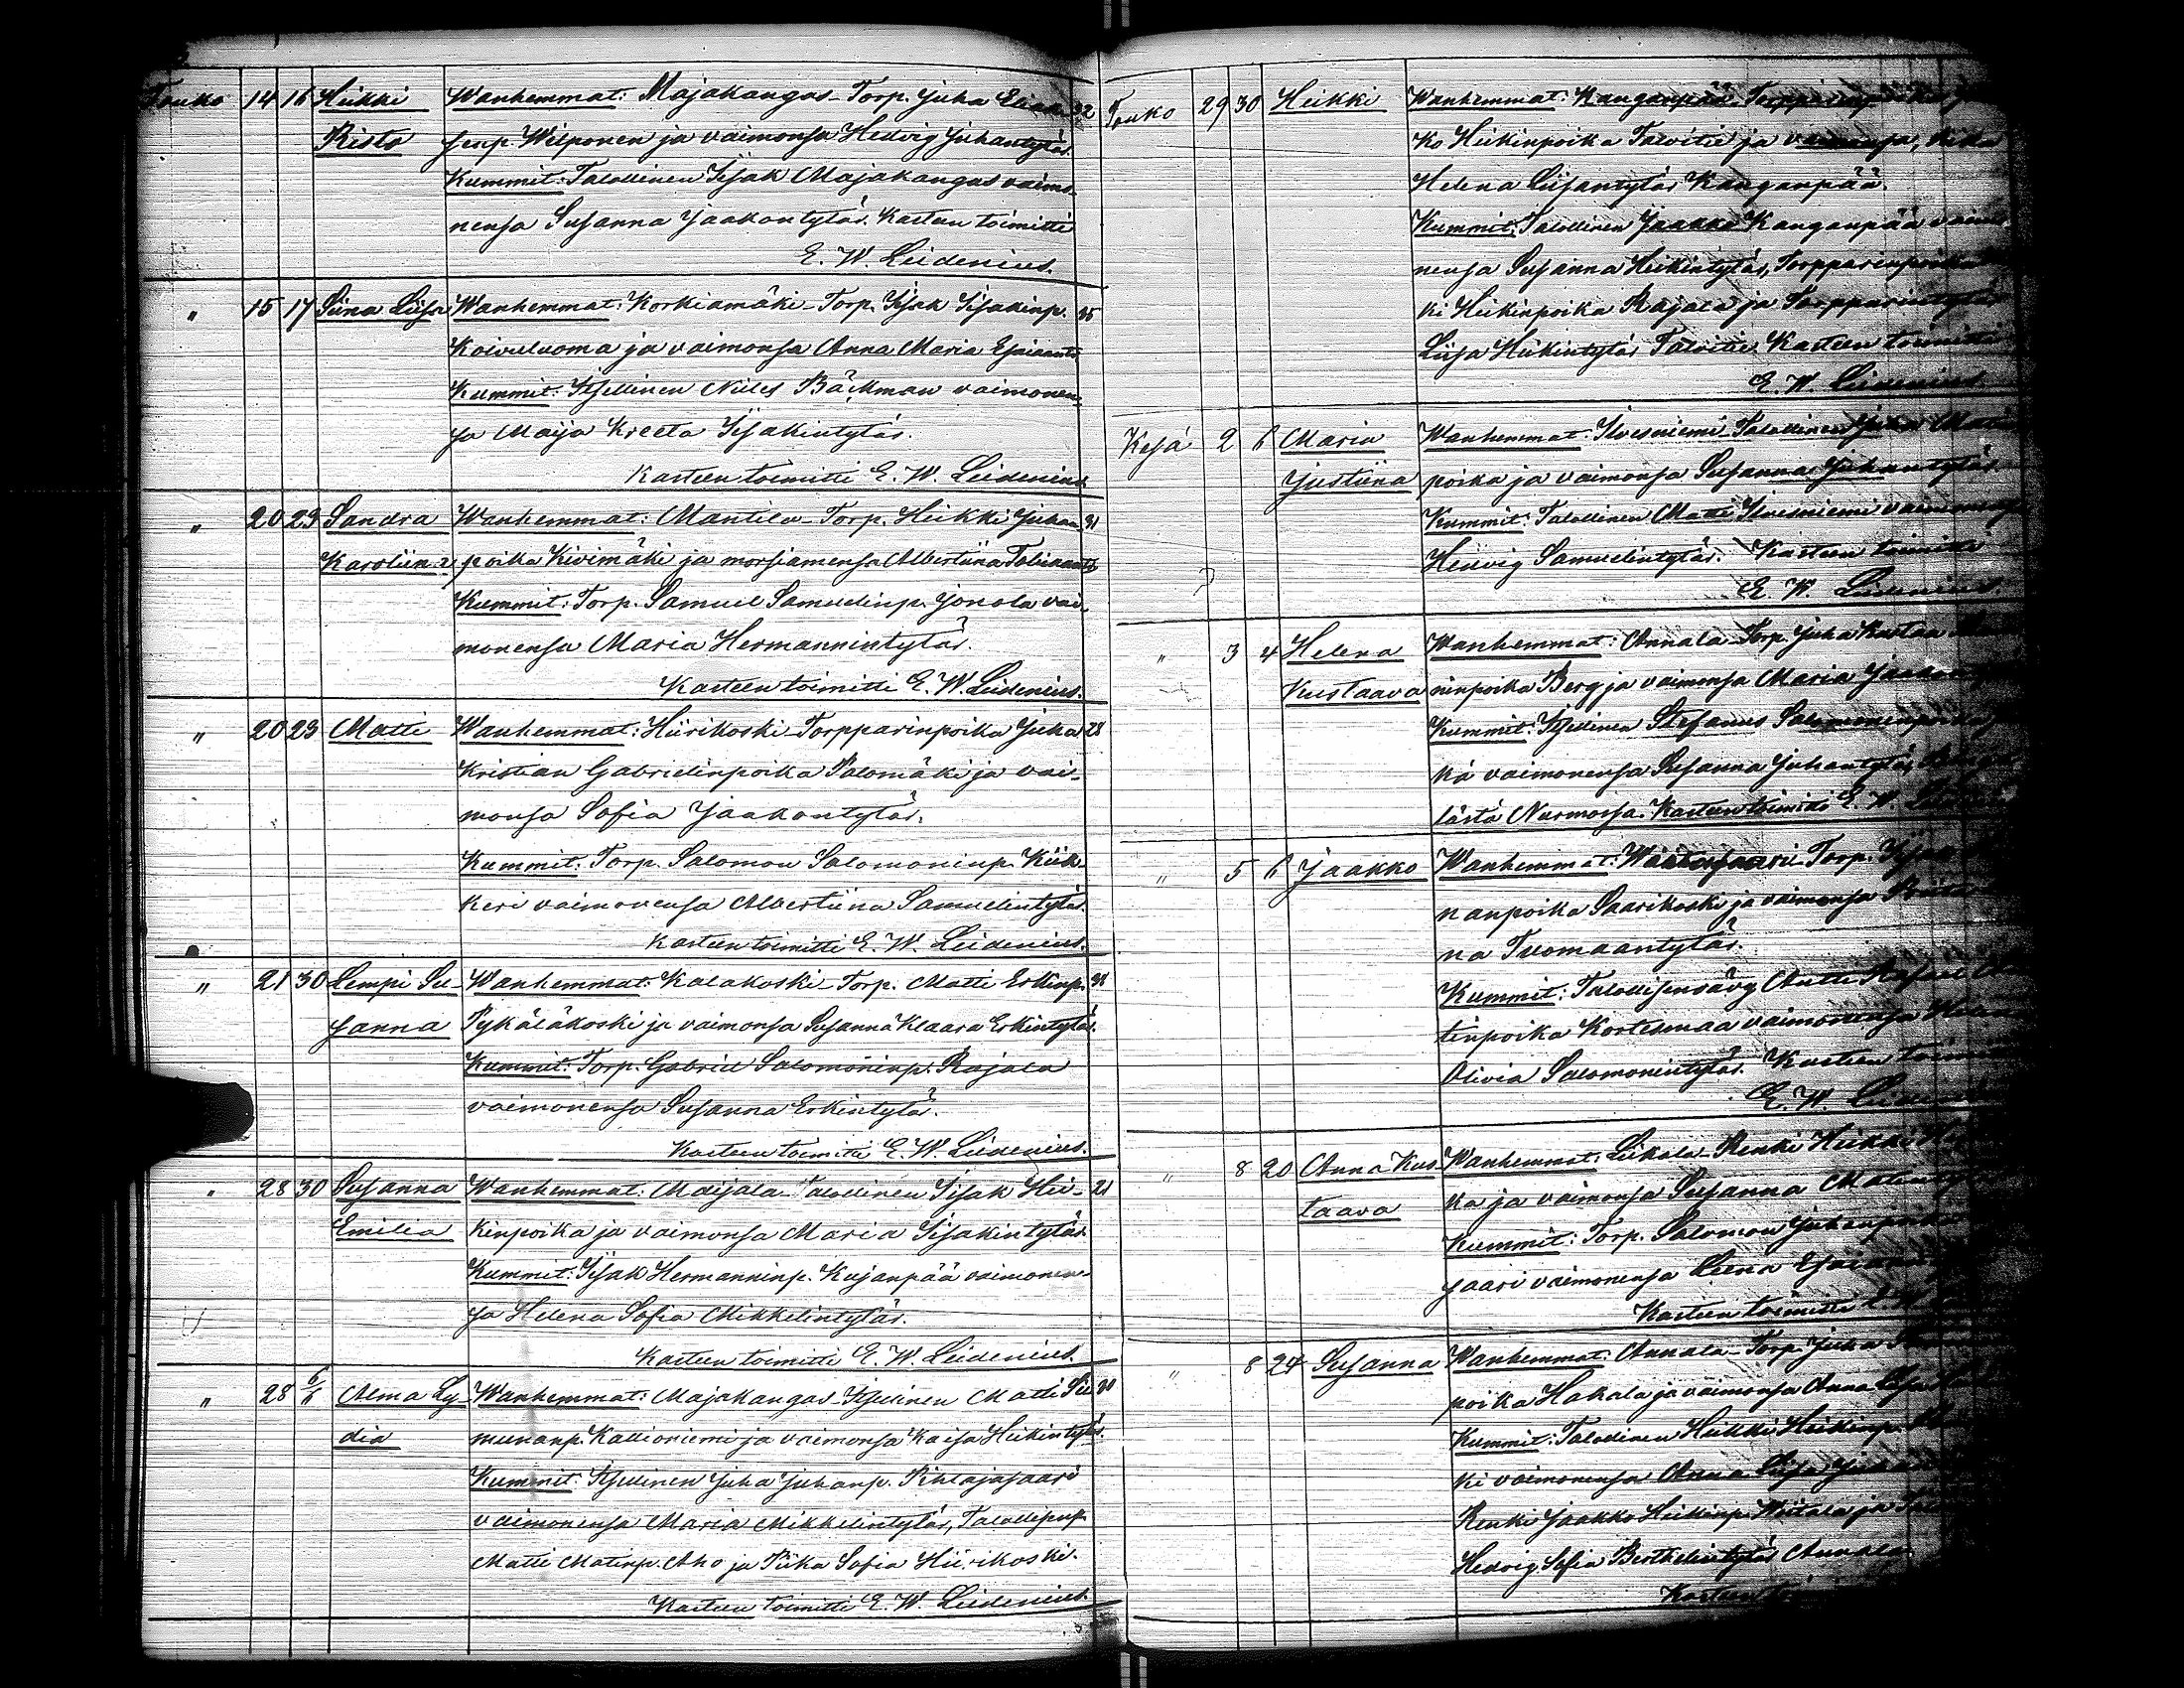 Touko 14 16 Heikki Wanhemmat: Majakangas-Torp. Juha 32
Risto senp. Wilponen ja vaimonsa Hedvig Juhantytär.
Kummit: Talollinen Iisak Majakangas vaimo-
nensa Susanna Jaakontytär. Kasteen toimitti
E. W. Leidenius.
" 15 17 Siina Liisa Wanhemmat: Korkiamäki-Torp. Iisak Iisakinp. 35
Koivuluoma ja vaimonsa Anna Maria Esaiaant.
Kummit: Itsellinen Niles Bäckman vaimonen-
sa Maija Kreeta Iisakintytär.
Kasteen toimitti E. W. Leidenius.
" 20 23 Sandra Wanhemmat: Mantila-Torp. Heikki Juhan 31
Karoliina poika Kivimäki ja morsiamensa Albertiina Tobiaant.
Kummit: Torp. Samuel Samuelinp. Jonola vai-
monensa Maria Hermannintytär.
Kasteen toimitti E. W. Leidenius.
" 20 23 Matti Wanhemmat: Hiirikoski-Torpparinpoika Juha 28
Kristian Gabrielinpoika Palomäki ja vai-
monsa Sofia Jaakontytär.
Kummit: Torp. Salomon Salomoninp. Kiik-
keri vaimonensa Albertiina Samuelintytär.
Kasteen toimitti E. W. Leidenius.
" 21 30 Lempi Su- Wanhemmat: Kalakoski-Torp. Matti Erkinp.
sanna Pykäläkoski ja vaimonsa Susanna Klaara Erkintytär.
Kummit: Torp. Gabriel Salomoninp. Rajala
vaimonensa Susanna Erkintytär.
Kasteen toimitti E. W. Leidenius.
" 28 30 Susanna Wanhemmat: Maijala-Talollinen Iisak Hei- 21
Emilia kinpoika ja vaimonsa Maria Iisakintytär.
Kummit: Iisak Hermanninp. Kujanpää vaimonen-
sa Helena Sofia Mikkelintytär.
Kasteen toimitti E. W. Leidenius.
" 28 6/6 Alma Ly- Wanhemmat: Majakangas-Itsellinen Matti Sii
dia meonanp. Kallioniemi ja vaimonsa Kaisa Heikintytär.
Kummit: Itsellinen Juha Juhanp. Pihlajasaari
vaimonensa Maria Mikkelintytär, Talollisenp.
Matti Matinp. Aho ja Piika Sofia Hiirikoski.
Kasteen toimitti E. W. Leidenius.
Touko 29 30 Heikki Wanhemmat: Kanganpää
ko Heikinpoika Talvitie ja vaimonsa,
Helena Liisantytär Kanganpää.
Kummit: Talollinen Jaakko Kanganpää vaimo-
nensa Susanna Heikintytär, Torpparinpoika
ki Heikinpoika Rajala ja Torpparintytär
Liisa Heikintytär Talvitie. Kasteen toimitti
E. W. Leidenius.
Kesä 2 6 Maria Wanhemmat: Ilvesniemi-Talollinen Juha Matin
Justiina poika ja vaimonsa Susanna Juhantytär.
Kummit: Talollinen Matti Ilvesniemi vaimonensa
Hedvig Samuelintytär. Kasteen toimitti
E. W. Leidenius.
" 3 4 Helena Wanhemmat: Annala-Torp. Juha Kustaa
Kustaava ninpoika Berg ja vaimonsa Maria Jaakon
Kummit: Itsellinen Stefanus Salomoninpoika
kä vaimonensa Susanna Juhantytär,
lästä Nurmossa. Kasteen toimitti E. W.
" 5 6 Jaakko Wanhemmat: Torp. Iisak
nanpoika Saarikoski ja vaimonsa
na Tuomaantytär.
Kummit: Talollisenvävy Antti
tinpoika Kortesmaa vaimonensa
Olivia Salomonintytär. Kasteen toimitti
E. W. Leidenius
" 8 20 Anna Kus- Wanhemmat: Leikala-Renki Heikki
taava ka ja vaimonsa Susanna Matintytär
Kummit: Torp. Salomon Juhanpoika
saari vaimonensa Leena
Kasteen toimitti E. W.
" 8 24 Susanna Wanhemmat: Annala-Torp. Juha
poika Hakala ja vaimonsa Anna Liisa
Kummit: Talollinen Heikki Heikinp.
ki vaimonensa Anna Liisa
Renki Jaakko Heikinp. ja
Hedvig Sofia Annala.
Kasteen